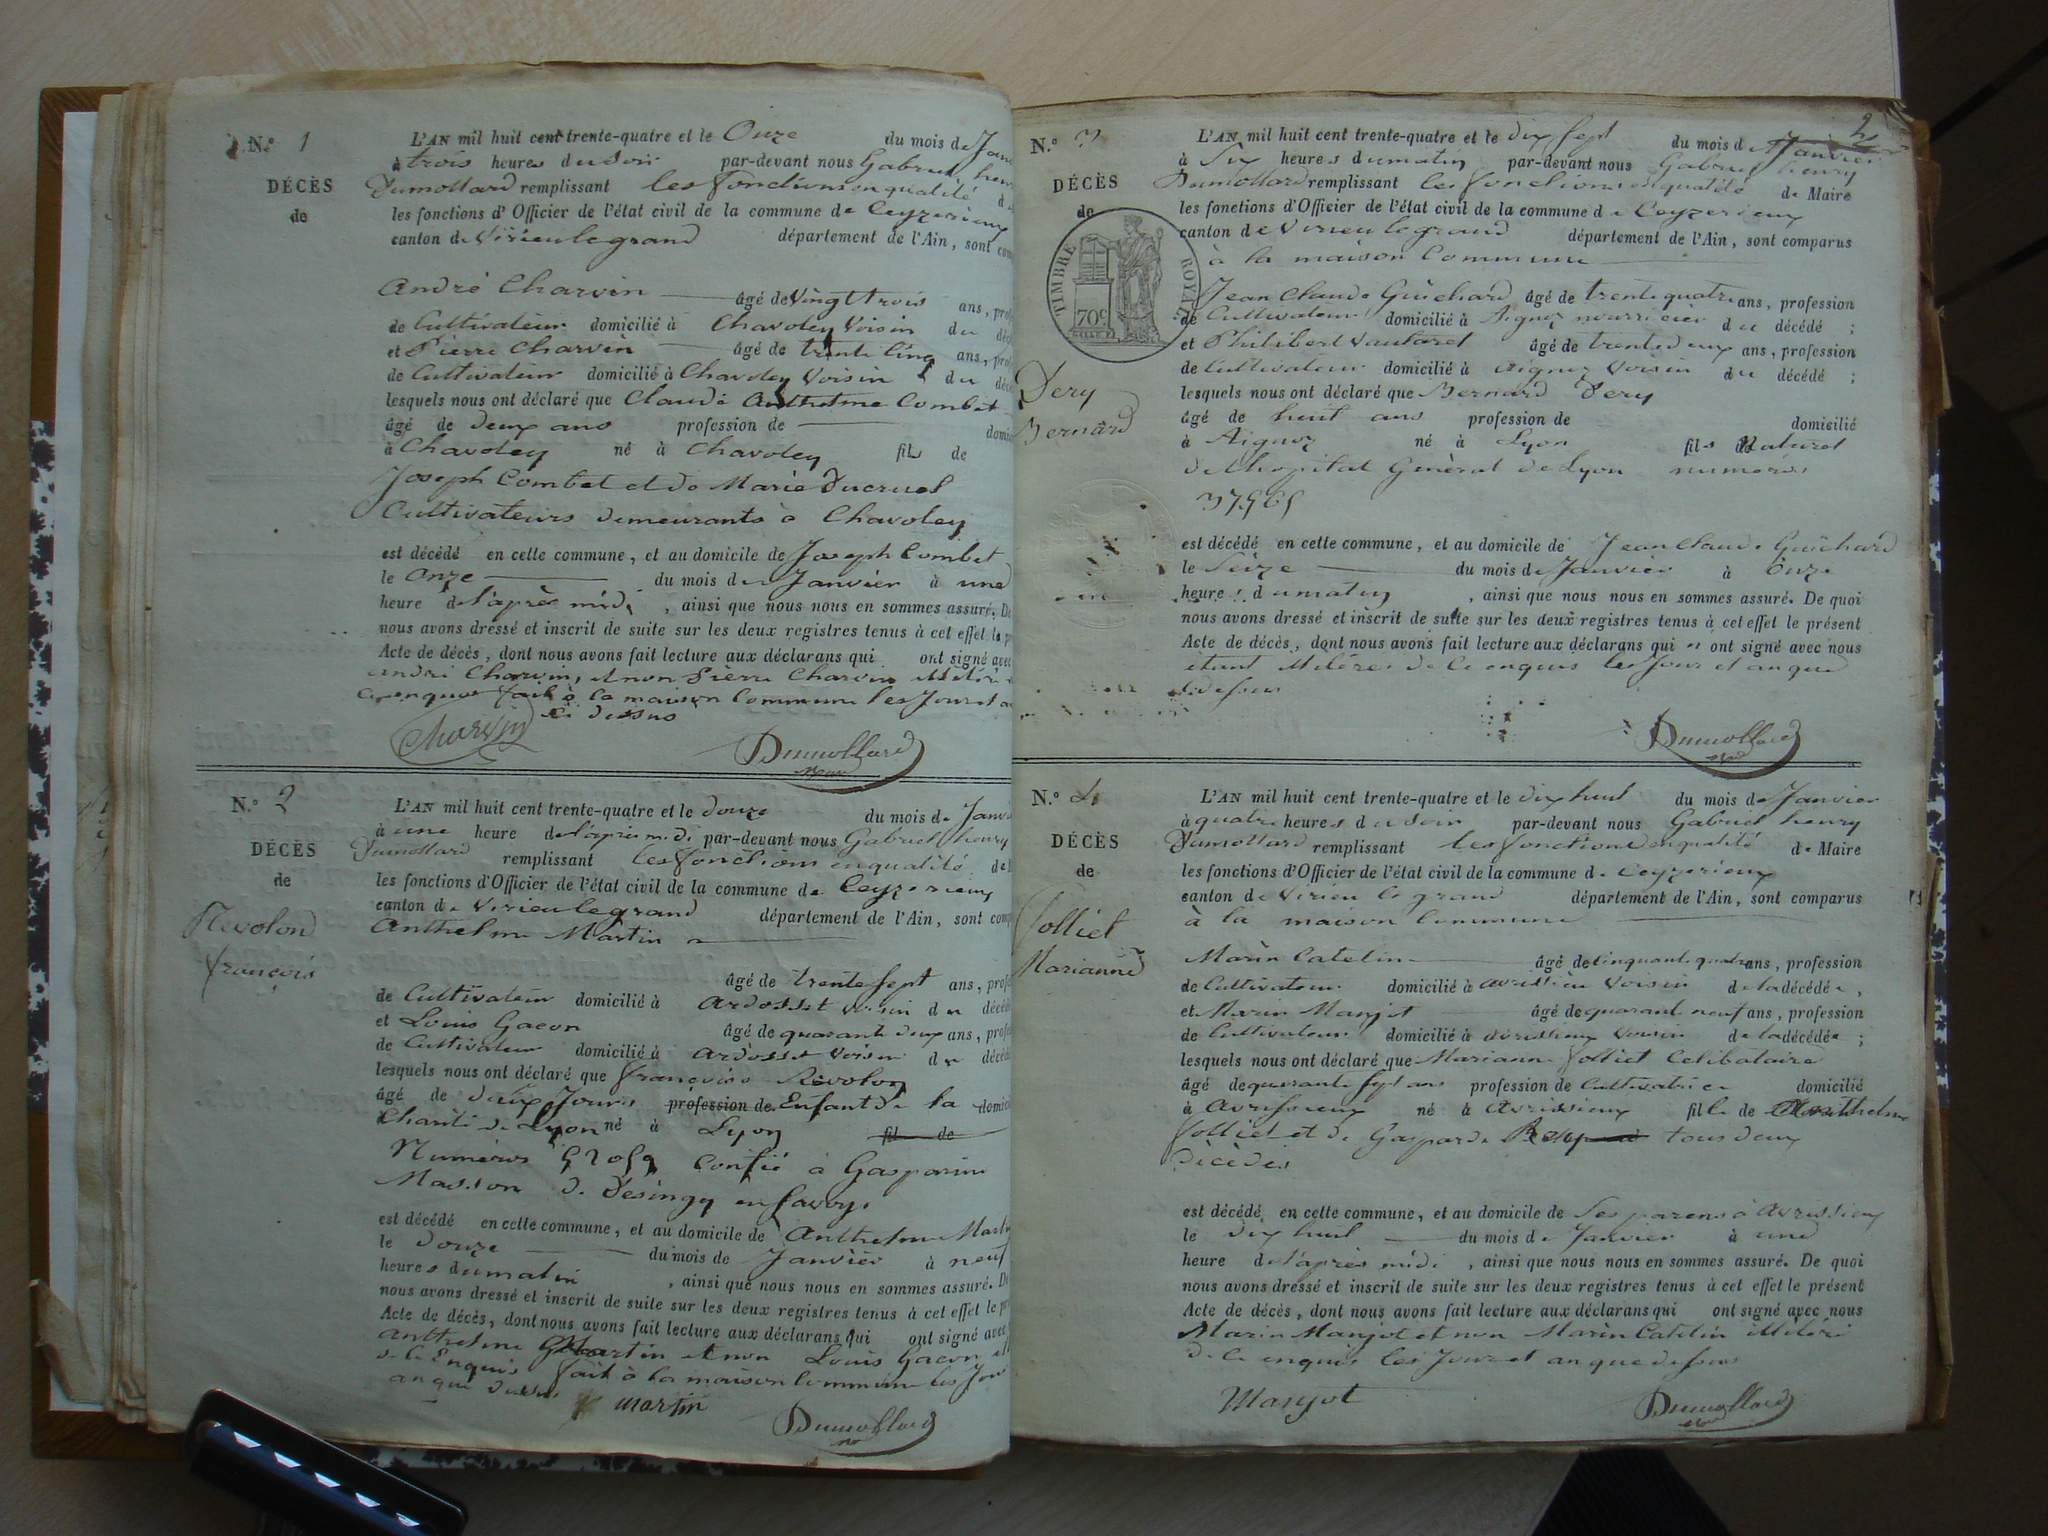 N.° 1
DÉCÈS
de
L'AN mil huit cent trente-quatre et le Onze du mois de Jan
à trois heures du Soir par-devant nous Gabriel henr
Dumollard remplissant les fonctions en qualité d
les fonctions d'Officier de l'état civil de la commune de Ceyzerieux
canton de Virieu le grand département de l'Ain, sont com
André Charvin âgé de Vingt trois ans, prof
de Cultivateur domicilié à Chavoley Voisin du déc
et Pierre Charvin âgé de trente Cinq ans, prof
de Cultivateur domicilié à Chavoley Voisin du déc
lesquels nous ont déclaré que Claude Anthelme Combet
âgé de deux ans profession de domi
à Chavoley né à Chavoley fils de
Joseph Combet et de Marie Ducruet
Cultivateurs demeurants à Chavoley
est décédé en cette commune, et au domicile de Joseph Combet
le Onze du mois de Janvier à une
heure de l'après midi, ainsi que nous nous en sommes assuré. De
nous avons dressé et inscrit de suite sur les deux registres tenus à cet effet le p
Acte de décès, dont nous avons fait lecture aux déclarans qui ont signé avec
andré Charvin, et non Pierre Charvin illétéré
ce enquis fait à la maison Commune les Jour et a
ci dessus
Charvin Dumollard
N.° 2
DÉCÈS
de
Revolond
françois
L'AN mil huit cent trente-quatre et le douze du mois de Janvi
à une heure de l'après midi par-devant nous Gabriel henry
Dumollard remplissant les fonctions en qualité de
les fonctions d'Officier de l'état civil de la commune de Ceyzerieux
canton de Virieu le grand département de l'Ain, sont comp
Anthelme Martin
âgé de trente Sept ans, profe
de Cultivateur domicilié à Ardosset voisin du décéd
et Louis Gacon âgé de quarante deux ans, profe
de Cultivateur domicilié à Ardosset Voisin du décéd
lesquels nous ont déclaré que françois Revolon
âgé de deux Jours profession de Enfant de la domici
Charité de Lyon né à Lyon fil de
Numéros confié à Gasparine
Masson de Désingy en Savoye
est décédé en cette commune, et au domicile de Anthelme Martin
le douze du mois de Janvier à neuf
heures du matin, ainsi que nous nous en sommes assuré. De
nous avons dressé et inscrit de suite sur les deux registres tenus à cet effet le pr
Acte de décès, dont nous avons fait lecture aux déclarans qui ont signé avec
anthelme Martin et non Louis Gacon
de ce Enquis fait à la maison Commune les Jour
an que dessus
martin Dumollard
2
N.° 3
DÉCÈS
de
TIMBRE ROYAL
70c
Dery
Bernard
L'AN mil huit cent trente-quatre et le dix Sept du mois de Janvier
à Six heures du matin par-devant nous Gabriel henry
Dumollard remplissant les fonctions en qualité de Maire
les fonctions d'Officier de l'état civil de la commune de Ceyzerieux
canton de Virieu le grand département de l'Ain, sont comparus
à la maison Commune
Jean Claude Guichard âgé de trente quatre ans, profession
de Cultivateur domicilié à Aignoz nourricier du décédé ;
et Philibert Vautaret âgé de trente deux ans, profession
de Cultivateur domicilié à Aignoz Voisin du décédé ;
lesquels nous ont déclaré que Bernard Dery
âgé de huit ans profession de domicilié
à Aignoz né à Lyon fils Naturel
de l'hopital Général de Lyon numéros
est décédé en cette commune, et au domicile de Jean Claude Guichard
le Seize du mois de Janvier à Onze
heures du matin, ainsi que nous nous en sommes assuré. De quoi
nous avons dressé et inscrit de suite sur les deux registres tenus à cet effet le présent
Acte de décès, dont nous avons fait lecture aux déclarans qui n ont signé avec nous
étant illétérés de ce enquis les Jour et an que
dessus
Dumollard
N.° 4
DÉCÈS
de
Jolliet
Marianne
L'AN mil huit cent trente-quatre et le dix huit du mois de Janvier
à quatre heures du Soir par-devant nous Gabriel henry
Dumollard remplissant les fonctions en qualité de Maire
les fonctions d'Officier de l'état civil de la commune de Ceyzerieux
canton de Virieu le grand département de l'Ain, sont comparus
à la maison Commune
Marin Catelin âgé de Cinquante quatre ans, profession
de Cultivateur domicilié à avrissieu Voisin de la décédée,
et Marin Manjot âgé de quarante neuf ans, profession
de Cultivateur domicilié à avrissieux Voisin de la décédée ;
lesquels nous ont déclaré que Marianne Jolliet Célibataire
âgé de quarante Sept ans profession de Cultivatrice domicilié
à Avrissieux né à Avrissieux fille de Anthelme
Jolliet et de Gasparde tous deux
Décédés
est décédé en cette commune, et au domicile de Ses parens à Avrissieux
le dix huit du mois de Janvier à une
heure de l'après midi, ainsi que nous nous en sommes assuré. De quoi
nous avons dressé et inscrit de suite sur les deux registres tenus à cet effet le présent
Acte de décès, dont nous avons fait lecture aux déclarans qui ont signé avec nous
Marin Manjot et non Marin Catelin illétéré
de ce enquis les Jour et an que dessus
Manjot Dumollard